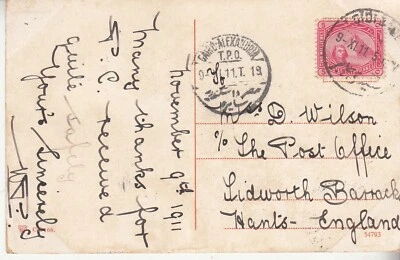 November 9th 1911
Many thanks for
P.C. received
quite safely
Yours sincerely
CAIRO-ALEXANDRIA
T.P.O.
11.T.19
9-XI.11
To
D. Wilson
c/o The Post Office
Lidworth Barrack
Hants- England
54793